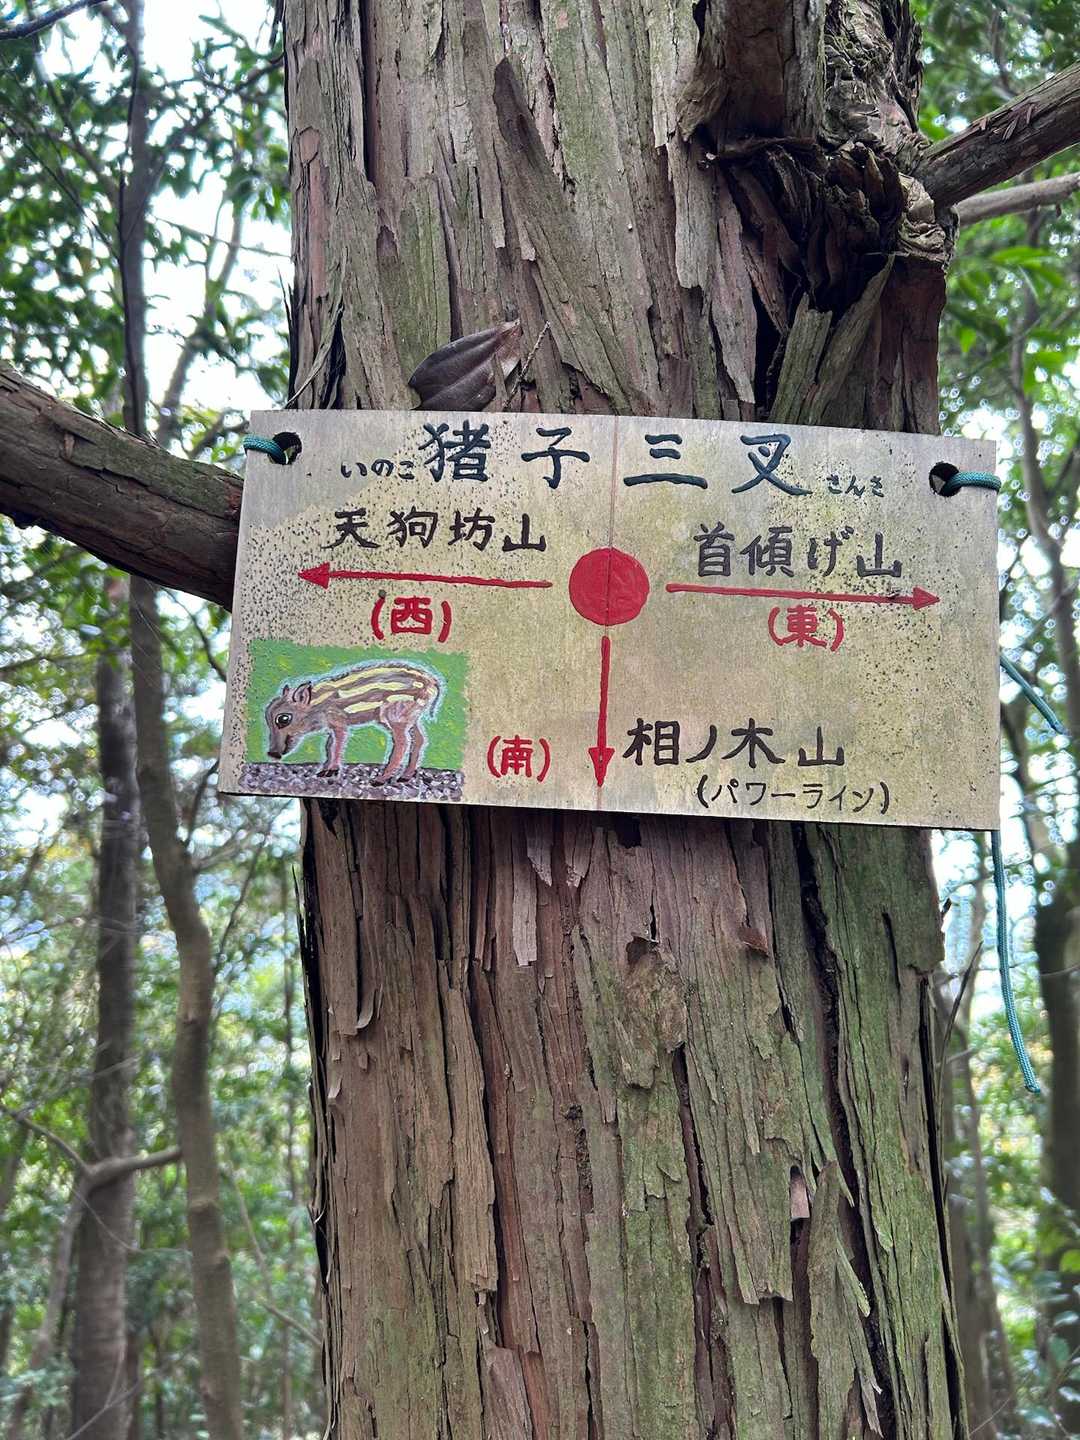 いのこ 猪子三叉 さんさ
天狗坊山
首傾げ山
(西)
(東)
(南)
相ノ木山
(パワーライン)